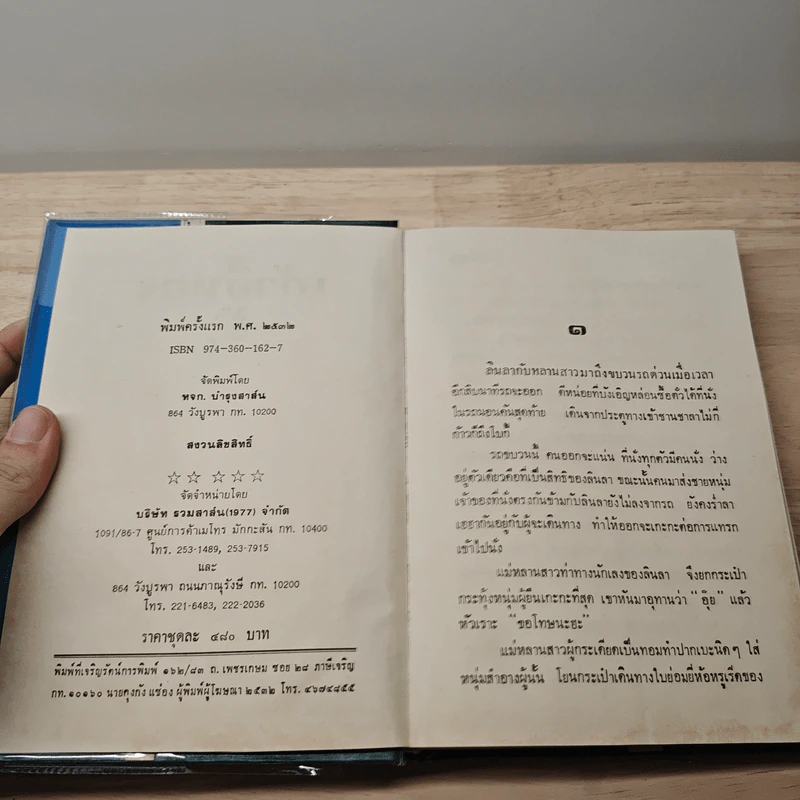 พิมพ์ครั้งแรก พ.ศ. ๒๕๓๒
ISBN 974-360-162-7
จัดพิมพ์โดย
หจก. บำรุงสาส์น
864 วังบูรพา กท. 10200
สงวนลิขสิทธิ์
☆☆ ☆☆☆
จัดจำหน่ายโดย
บริษัท รวมสาส์น(1977) จำกัด
1091/86-7 ศูนย์การค้าเมโทร มักกะสัน กท. 10400
โทร. 253-1489, 253-7915
และ
864 วังบูรพา ถนนภาณุรังษี กท. 10200
โทร. 221-6483, 222-2036
ราคาชุดละ ๔๘๐ บาท
พิมพ์ที่เจริญรัตน์การพิมพ์ ๑๖๒/๘๓ ถ. เพชรเกษม ซอย ๒๘ ภาษีเจริญ
กท. ๑๐๑๖๐ นายคุงกัง แซ่อง ผู้พิมพ์ผู้โฆษณา ๒๕๓๒ โทร. ๔๖๗๔๘๕๕
๑
ลินลากับหลานสาวมาถึงขบวนรถด่วนเมื่อเวลา
อีกสิบนาทีรถจะออก ดีหน่อยที่บังเอิญหล่อนซื้อตั๋วได้ที่นั่ง
ในรถนอนคันสุดท้าย เดินจากประตูทางเข้าชานชาลาไม่กี่
ก้าวก็ถึงโบกี้
รถขบวนนี้ คนออกจะแน่น ที่นั่งทุกตัวมีคนนั่ง ว่าง
อยู่ตัวเดียวคือที่เป็นสิทธิของลินลา ขณะนั้นคนมาส่งชายหนุ่ม
เจ้าของที่นั่งตรงกันข้ามกับลินลายังไม่ลงจากรถ ยังคงร่ำลา
เฮฮากันอยู่กับผู้จะเดินทาง ทำให้ออกจะเกะกะต่อการแทรก
เข้าไปนั่ง
แม่หลานสาวท่าทางนักเลงของลินลา จึงยกกระเป๋า
กระทุ้งหนุ่มผู้ยืนเกะกะที่สุด เขาหันมาอุทานว่า "อุ๊ย" แล้ว
หัวเราะ "ขอโทษนะฮะ"
แม่หลานสาวผู้กระเดียดเป็นทอมทำปากเบะนิดๆ ใส่
หนุ่มสำอางผู้นั้น โยนกระเป๋าเดินทางใบย่อมยี่ห้อหรูเริ่ดของ